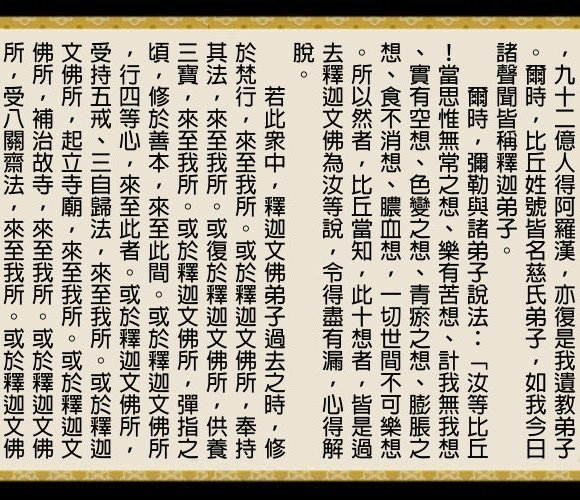 ，九十二億人得阿羅漢，亦復是我遺教弟子
。爾時，比丘姓號皆名慈氏弟子，如我今日
諸聲聞皆稱釋迦弟子。
爾時，彌勒與諸弟子說法：「汝等比丘
！當思惟無常之想、樂有苦想、計我無我想
、實有空想、色變之想、青瘀之想、膨脹之
想、食不消想、膿血想，一切世間不可樂想
。所以然者，比丘當知，此十想者，皆是過
去釋迦文佛為汝等說，令得盡有漏，心得解
脫。
若此眾中，釋迦文佛弟子過去之時，修
於梵行，來至我所。或於釋迦文佛所，奉持
其法，來至我所。或復於釋迦文佛所，供養
三寶，來至我所。或於釋迦文佛所，彈指之
頃，修於善本，來至此間。或於釋迦文佛所
，行四等心，來至此者。或於釋迦文佛所，
受持五戒、三自歸法，來至我所。或於釋迦
文佛所，起立寺廟，來至我所。或於釋迦文
佛所，補治故寺，來至我所。或於釋迦文佛
所，受八關齋法，來至我所。或於釋迦文佛